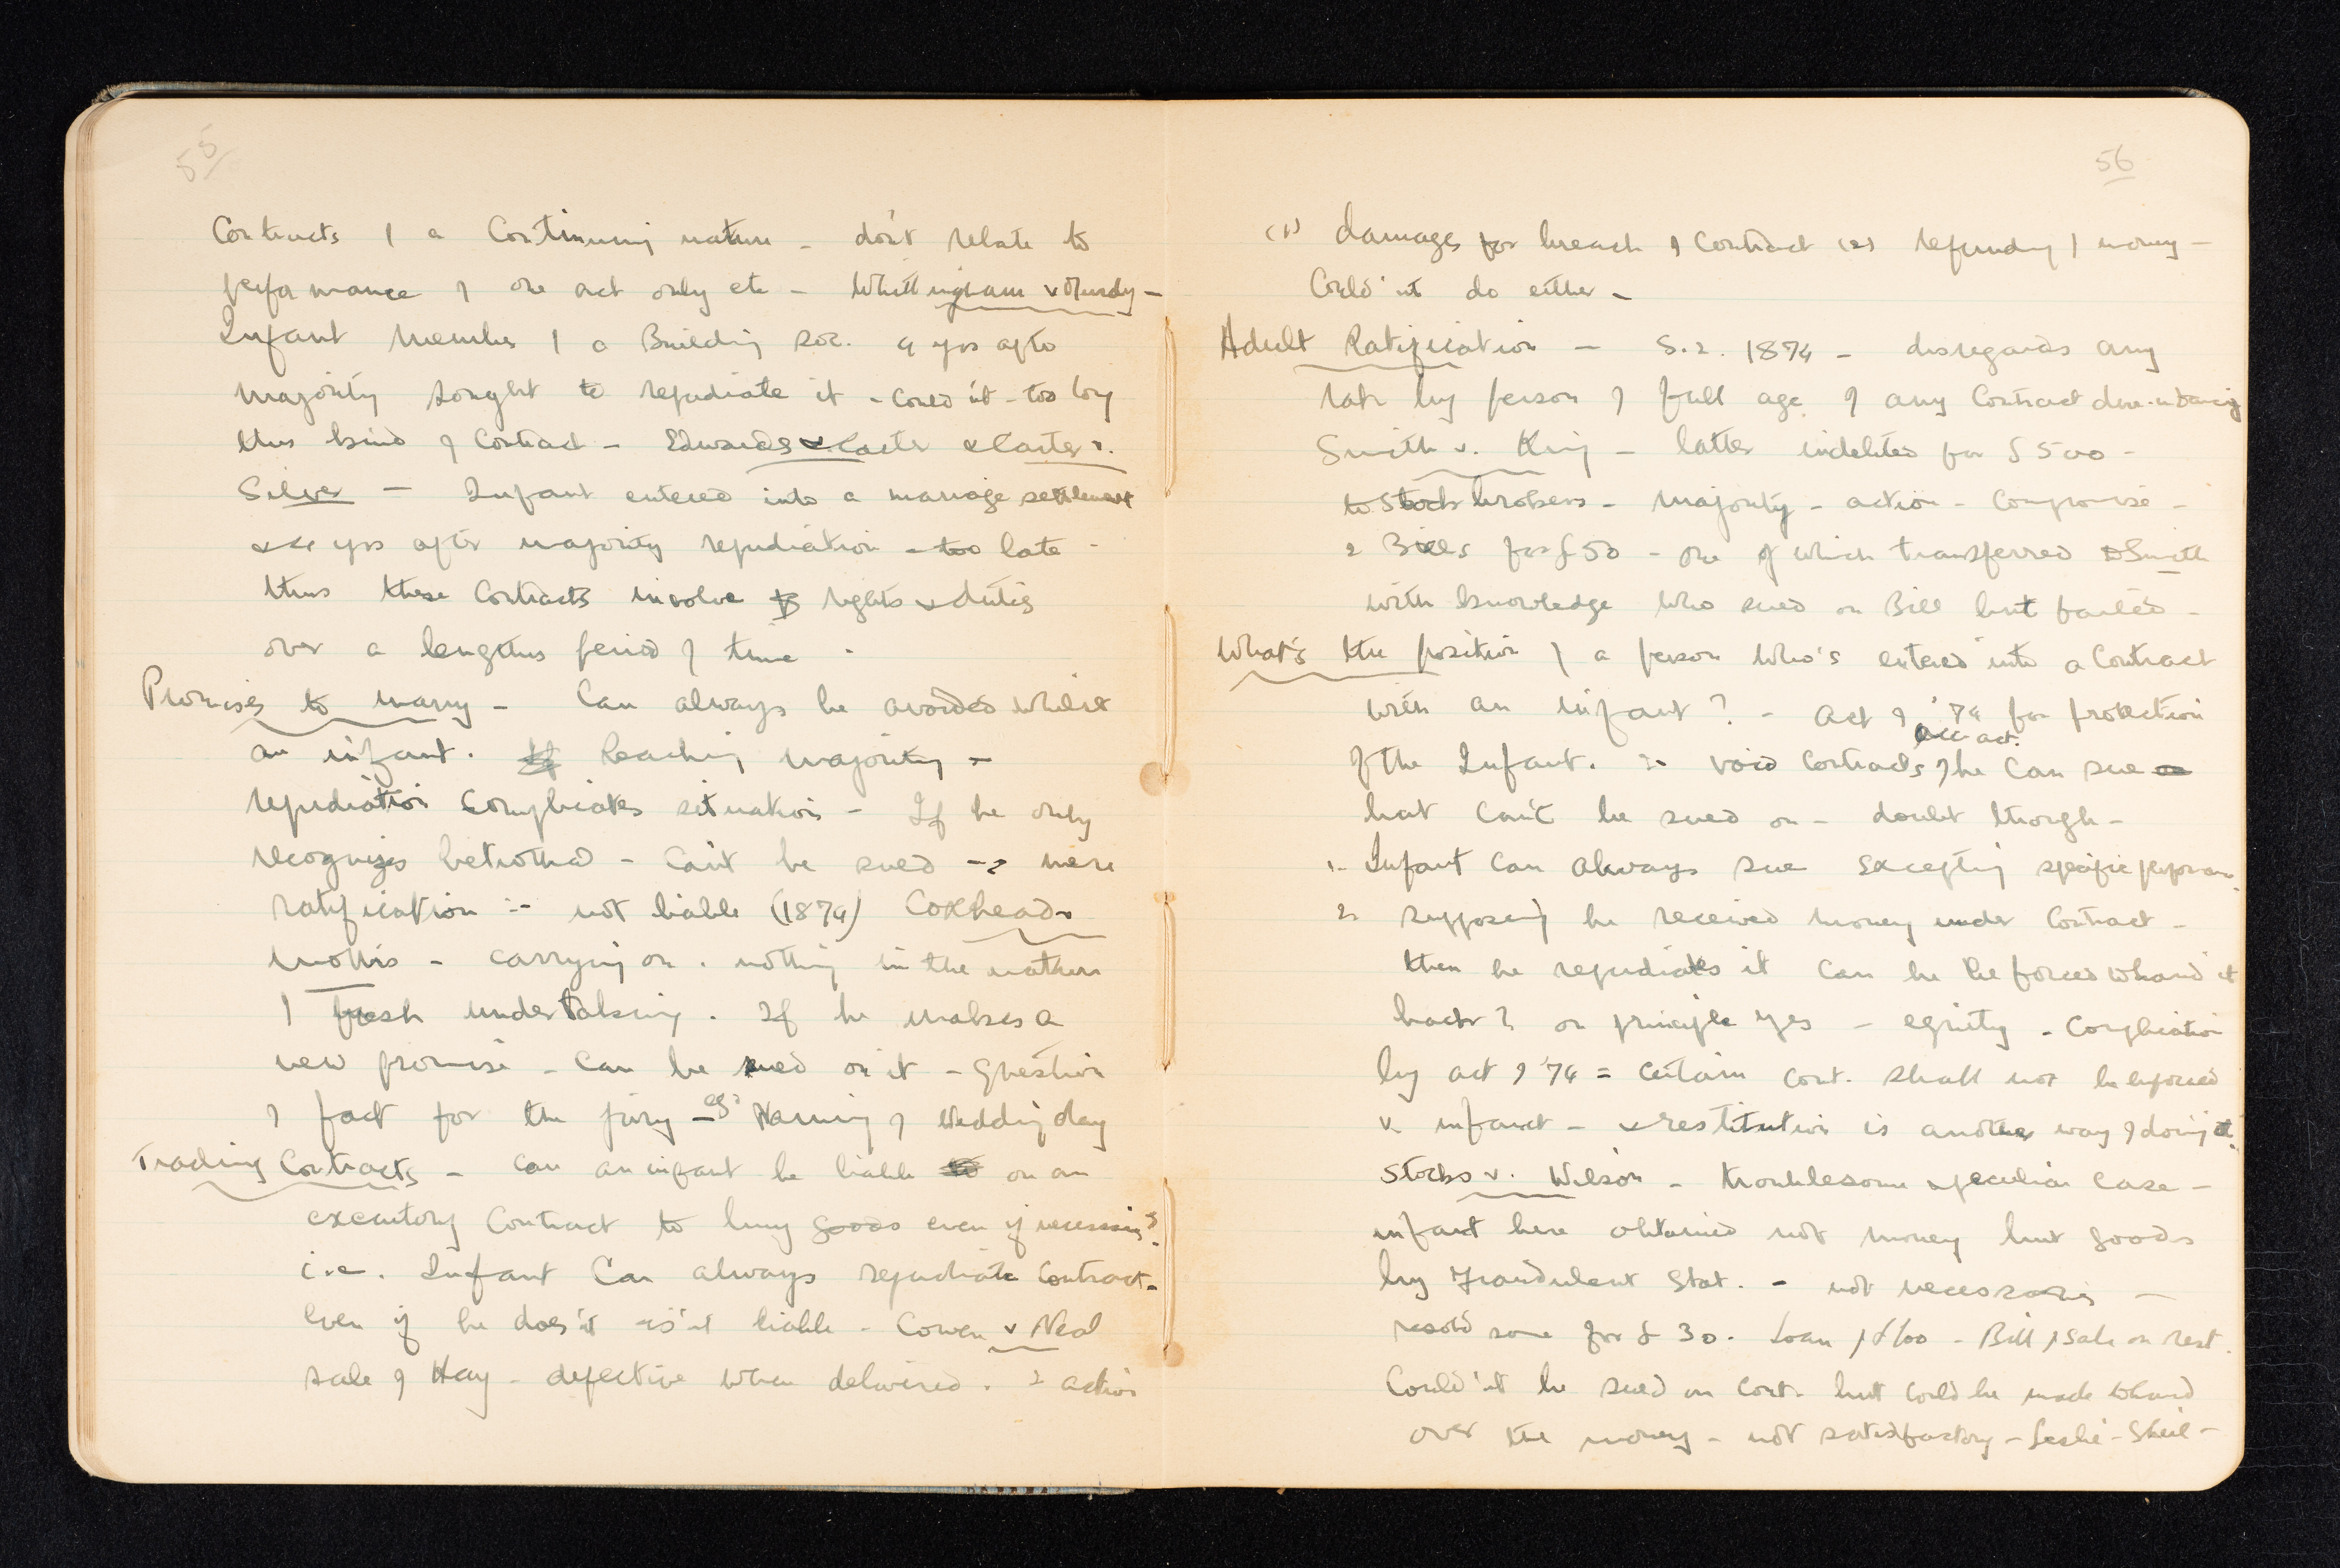 55
Contracts of a Continuing nature - don't relate to
performance of one act only etc - Whittingham v Murdy -
Infant member of a Building soc. 4 yrs after
majority sought to repudiate it - could'nt - too long
this kind of Contract - Edwards v Carter & Carter v.
Silver - Infant entered into a marriage settlement
& 4 yrs after majority repudiation - too late -
thus these Contracts involve rights & duties
over a lengthy period of time -
Promises to marry - Can always be avoided whilst
an infant. Reaching majority -
repudiation Complicates situation - If he only
recognizes betrothal - Can't be sued - mere
ratification ∴ not liable (1874) Coxhead v
Mullis - carrying on. nothing in the nature
of fresh undertaking. If he makes a
new promise - Can be sued on it - Question
of fact for the jury - eg: Naming of Wedding day
Trading Contracts - Can an infant be liable on an
executory Contract to buy goods even if necessaries?
i.e. Infant Can always repudiate Contract -
Even if he does'nt is'nt liable - Cowen v Neal
sale of Hay - defective when delivered. 2 action
56
(1) damages for breach of Contract (2) refunding of money -
Could'nt do either -
Adult Ratification - S.2. 1874 - disregards any
ratn by person of full age of any Contract dur. infancy
Smith v. King - latter indebted for £500 -
to Stock brokers - Majority - action - Compromise -
2 Bills for £50 - one of which transferred to Smith
with knowledge who sued on Bill but failed -
What's the position of a person who's entered into a Contract
with an infant? - Act of '74 for protection
acc. act.
of the Infant. ∴ void Contracts, he can sue on
but can't be sued on - doubt though -
1. Infant Can always sue excepting specific performan.
2. Supposing he received money under Contract -
then he repudiates it can he be forced to hand it
back? on principle yes - equity - Complication
by act of '74 = Certain Cont. shall not be enforced
v. infant - & restitution is another way of doing it.
Stocks v. Wilson - troublesome & peculiar case -
infant here obtained not money but goods
by fraudulent Stat. - not necessaries -
resold some for £30. Loan of £100 - Bill of Sale on rest.
Could'nt be sued on Cont. but could be made to hand
over the money - not satisfactory - Leslie - Sheil -